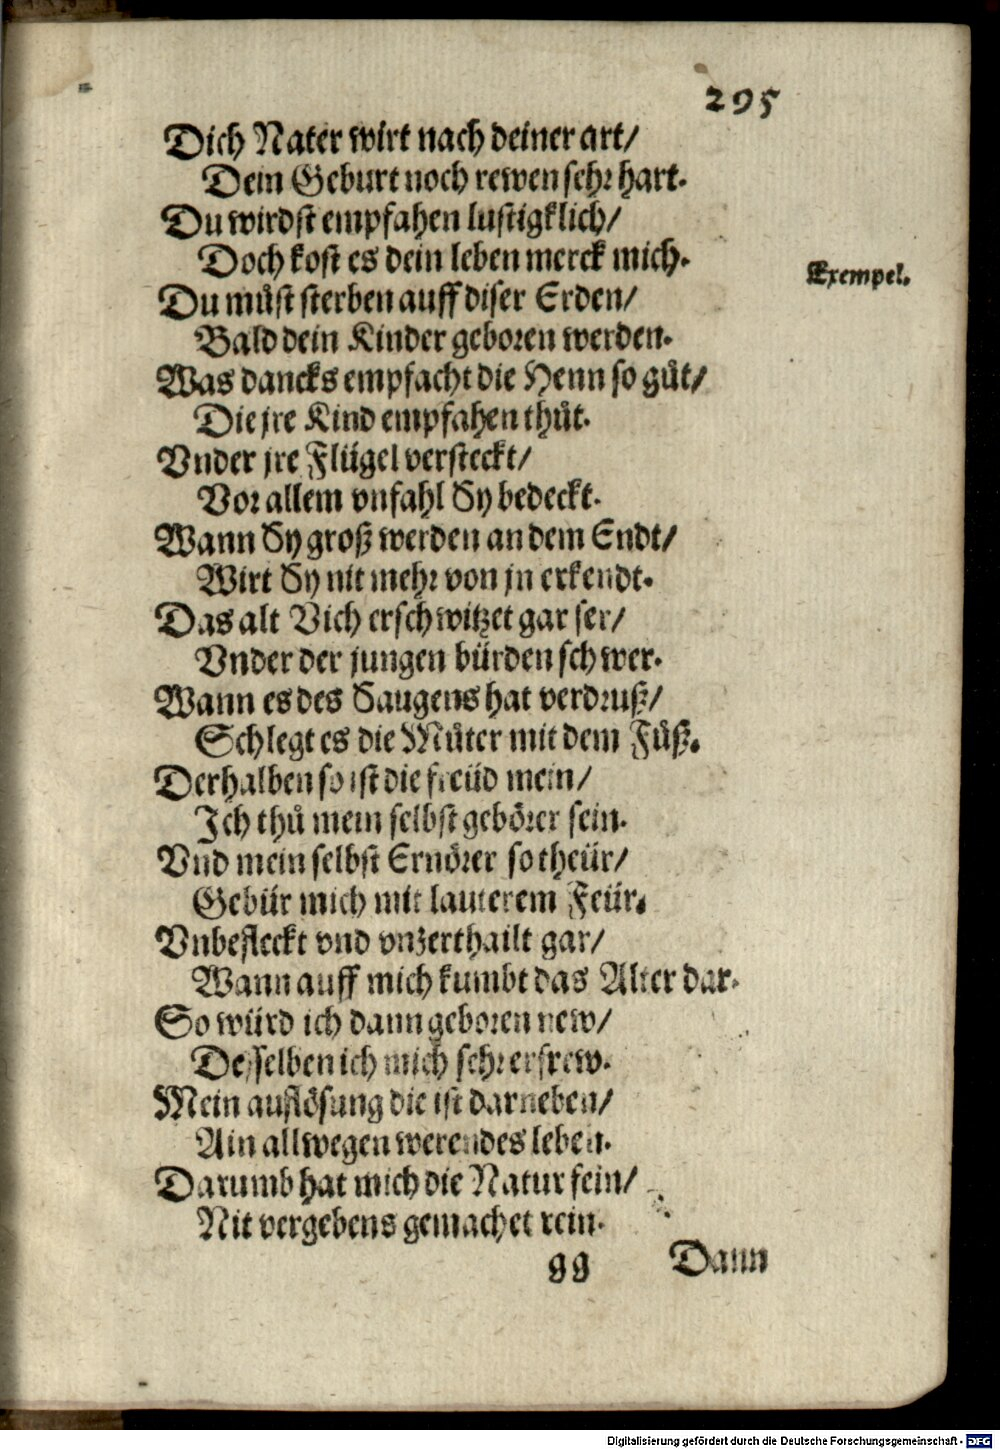 295
Dich Nater wirt nach deiner art/
Dein Geburt noch rewen sehr hart.
Du wirdst empfahen lustigklich/
Doch kost es dein leben merck mich.
Exempel.
Du můst sterben auff diser Erden/
Bald dein Kinder geboren werden.
Was dancks empfacht die Henn so gůt/
Die jre Kind empfahen thůt.
Vnder jre Flügel versteckt/
Vor allem vnfahl Sy bedeckt.
Wann Sy groß werden an dem Endt/
Wirt Sy nit mehr von jn erkendt.
Das alt Vich erschwitzet gar ser/
Vnder der jungen bürden schwer.
Wann es des Saugens hat verdruß/
Schlegt es die Můter mit dem Fůß.
Derhalben so ist die freüd mein/
Ich thů mein selbst gebörer sein.
Vnd mein selbst Ernörer so theür/
Gebür mich mit lauterem Feür.
Vnbefleckt vnd vnzerthailt gar/
Wann auff mich kumbt das Alter dar.
So würd ich dann geboren new/
Desselben ich mich sehr erfrew.
Mein auflösung die ist darneben/
Ain allwegen werendes leben.
Darumb hat mich die Natur fein/
Nit vergebens gemachet rein.
gg Dann
Digitalisierung gefördert durch die Deutsche Forschungsgemeinschaft - DFG